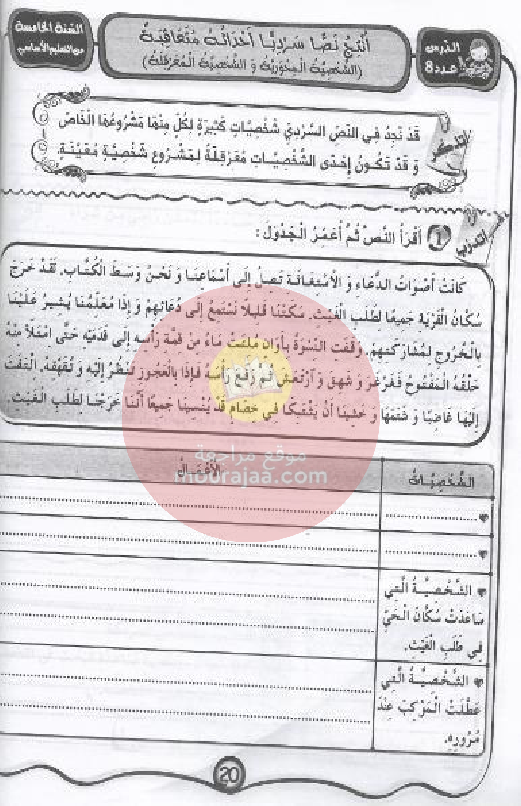 السّنة الخامسة
من التعليم الأساسي
أُنْتِجُ نَصًّا سَرْدِيًّا أَحْدَاثُهُ مُتَعَاقِبَةٌ
(الشَّخْصِيَّةُ الْمِحْوَرِيَّةُ وَ الشَّخْصِيَّةُ الْمُعَرْقِلَةُ)
الدّرس
عـدد 8
قَدْ نَجِدُ فِي النَّصِّ السَّرْدِيِّ شَخْصِيَّاتٍ كَثِيرَةٍ لِكُلٍّ مِنْهَا مَشْرُوعُهَا الْخَاصُّ
وَ قَدْ تَكُونُ إِحْدَى الشَّخْصِيَّاتِ مُعَرْقِلَةً لِمَشْرُوعِ شَخْصِيَّةٍ مُعَيَّنَةٍ
أتدرّب
1 أَقْرَأُ النَّصَّ ثُمَّ أُعَمِّرُ الْجَدْوَلَ :
كَانَتْ أَصْوَاتُ الدُّعَاءِ وَ الْاِسْتِغَاثَةِ تَصِلُ إِلَى أَسْمَاعِنَا وَ نَحْنُ وَسَطَ الْكُتَّابِ. لَقَدْ خَرَجَ
سُكَّانُ الْقَرْيَةِ جَمِيعًا لِطَلَبِ الْغَيْثِ. مَكَثْنَا قَلِيلًا نَسْتَمِعُ إِلَى دُعَائِهِمْ وَ إِذَا مُعَلِّمُنَا يُشِيرُ عَلَيْنَا
بِالْخُرُوجِ لِمُشَارَكَتِهِمْ. وَقَفَتِ النِّسْوَةُ بِأَوَانٍ مُلِئَتْ مَاءً مِنْ قِمَّةِ رَأْسِهِ إِلَى قَدَمَيْهِ حَتَّى امْتَلَأَ مِنْهُ
حَلْقُهُ الْمَفْتُوحُ فَغَرْغَرَ وَ شَهِقَ وَ ارْتَعَشَ ثُمَّ رَفَعَ رَأْسَهُ فَإِذَا بِالْعَجُوزِ تَنْظُرُ إِلَيْهِ وَ تُقَهْقِهُ. الْتَفَتَ
إِلَيْهَا غَاضِبًا وَ شَتَمَهَا وَ خَشِينَا أَنْ يَشْتَبِكَا فِي خِصَامٍ قَدْ يُنْسِينَا جَمِيعًا أَنَّنَا خَرَجْنَا لِطَلَبِ الْغَيْثِ.
الشَّخْصِيَّاتُ الْأَفْعَالُ
الشَّخْصِيَّةُ الَّتِي
سَاعَدَتْ سُكَّانَ الْحَيِّ
فِي طَلَبِ الْغَيْثِ.
الشَّخْصِيَّةُ الَّتِي
عَطَّلَتْ الْمَوْكِبَ عِنْدَ
مُرُورِهِ.
موقع مراجعة
mourajaa.com
20